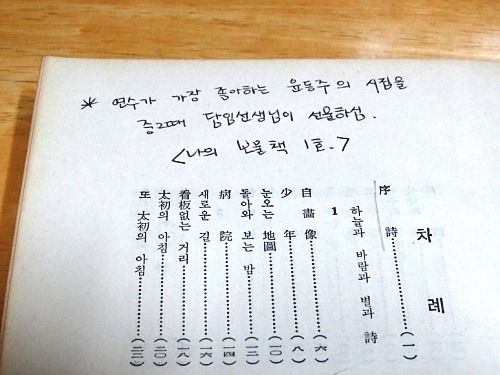 * 연수가 가장 좋아하는 윤동주의 시집을
중2때 담임선생님이 선물하심.
<나의 보물책 1호.>
차 례
序 詩……………(一)
1 하늘과 바람과 별과 詩
自 畵 像……………(六)
少 年……………(八)
눈오는 地圖……………(一〇)
돌아와 보는 밤……………(一二)
病 院……………(一四)
새로운 길……………(一六)
看板없는 거리……………(一八)
太初의 아침……………
또 太初의 아침……………